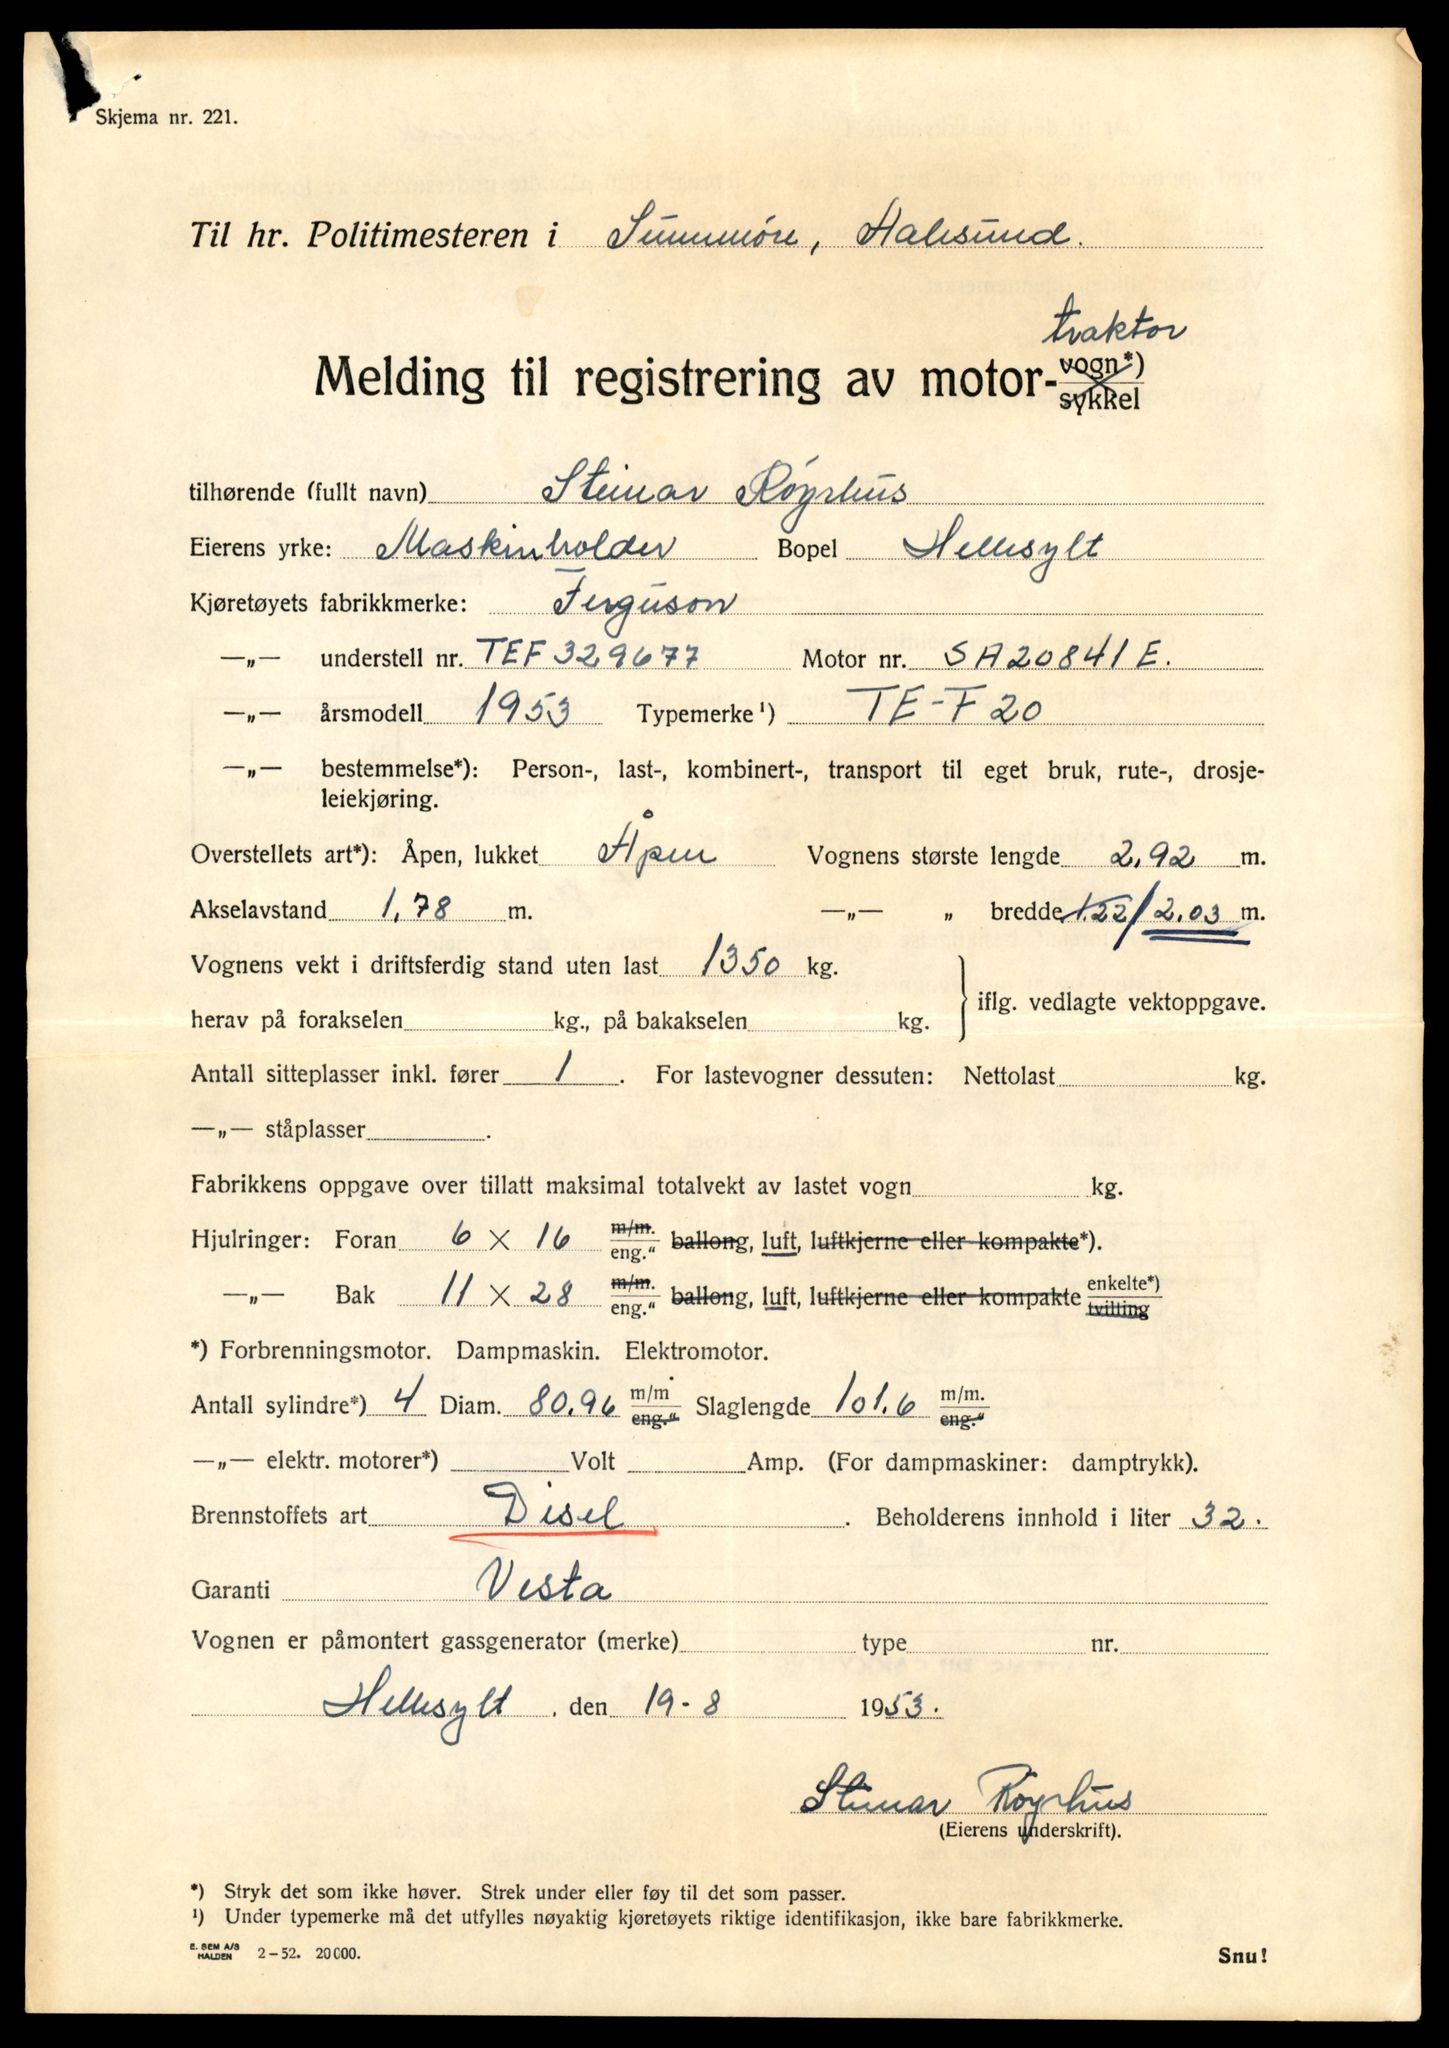 Skjema nr. 221.
Til hr. Politimesteren i Sunnmöre, Aalesund.
traktor
Melding til registrering av motor-vogn*)
sykkel
tilhørende (fullt navn) Steinar Röyrhus
Eierens yrke: Maskinholder Bopel Hellesylt
Kjøretøyets fabrikkmerke: Ferguson
—„— understell nr. TEF 329677 Motor nr. SA20841E.
—„— årsmodell 1953 Typemerke¹) TE-F 20
—„— bestemmelse*): Person-, last-, kombinert-, transport til eget bruk, rute-, drosje-
leiekjøring.
Overstellets art*): Åpen, lukket Åpen Vognens største lengde 2,92 m.
Akselavstand 1,78 m. —„— „ bredde 1.22/2.03 m.
Vognens vekt i driftsferdig stand uten last 1350 kg.
herav på forakselen kg., på bakakselen kg. iflg. vedlagte vektoppgave.
Antall sitteplasser inkl. fører 1. For lastevogner dessuten: Nettolast kg.
—„— ståplasser .
Fabrikkens oppgave over tillatt maksimal totalvekt av lastet vogn kg.
Hjulringer: Foran 6 × 16 m/m. eng." ballong, luft, luftkjerne eller kompakte*).
—„— Bak 11 × 28 m/m. eng." ballong, luft, luftkjerne eller kompakte enkelte*) tvilling
*) Forbrenningsmotor. Dampmaskin. Elektromotor.
Antall sylindre*) 4 Diam. 80.96 m/m eng." Slaglengde 101.6 m/m. eng."
—„— elektr. motorer*) Volt Amp. (For dampmaskiner: damptrykk).
Brennstoffets art Disel . Beholderens innhold i liter 32.
Garanti Vesta
Vognen er påmontert gassgenerator (merke) type nr.
Hellesylt, den 19-8 1953.
Steinar Röyrhus
(Eierens underskrift).
*) Stryk det som ikke høver. Strek under eller føy til det som passer.
¹) Under typemerke må det utfylles nøyaktig kjøretøyets riktige identifikasjon, ikke bare fabrikkmerke.
E. SEM A/S HALDEN 2-52. 20000. Snu!